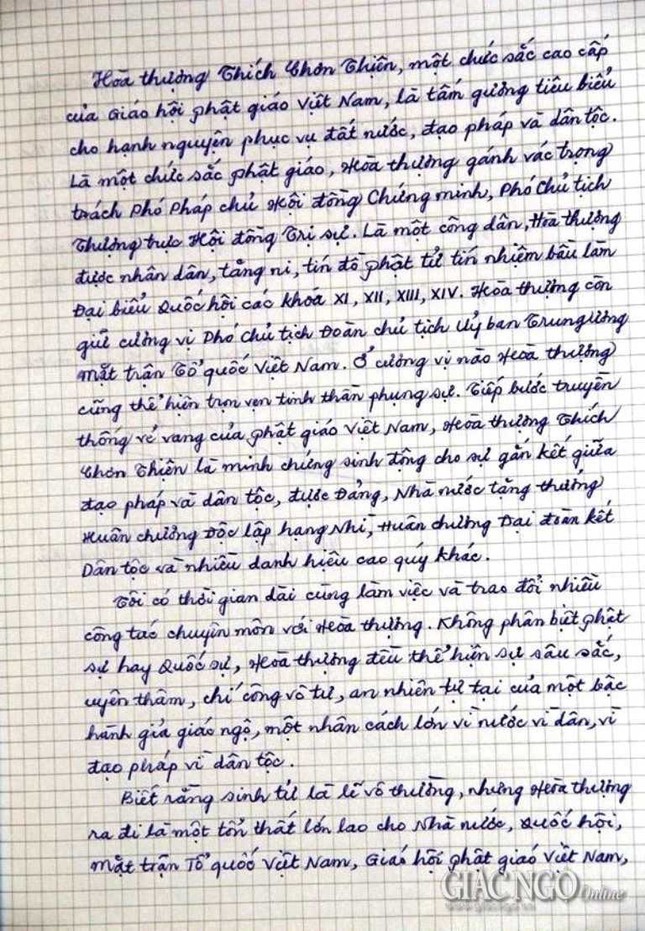 Hòa thượng Thích Chơn Thiện, một chức sắc cao cấp
của Giáo hội Phật giáo Việt Nam, là tấm gương tiêu biểu
cho hạnh nguyện phục vụ đất nước, đạo pháp và dân tộc.
Là một chức sắc Phật giáo, Hòa thượng gánh vác trọng
trách Phó Pháp chủ Hội đồng Chứng minh, Phó Chủ tịch
Thượng trực Hội đồng Trị sự. Là một công dân, Hòa thượng
được nhân dân, tăng ni, tín đồ Phật tử tín nhiệm bầu làm
Đại biểu Quốc hội các khóa XI, XII, XIII, XIV. Hòa thượng còn
giữ cương vị Phó Chủ tịch Đoàn chủ tịch Uỷ ban Trung ương
Mặt trận Tổ quốc Việt Nam. Ở cương vị nào Hòa thượng
cũng thể hiện trọn vẹn tinh thần phụng sự. Tiếp bước truyền
thống vẻ vang của Phật giáo Việt Nam, Hòa thượng Thích
Chơn Thiện là minh chứng sinh động cho sự gắn kết giữa
đạo pháp và dân tộc, được Đảng, Nhà nước tặng thưởng
Huân chương Độc lập hạng Nhì, Huân chương Đại đoàn kết
Dân tộc và nhiều danh hiệu cao quý khác.
Tôi có thời gian dài cùng làm việc và trao đổi nhiều
công tác chuyên môn với Hòa thượng. Không phân biệt Phật
sự hay Quốc sự, Hòa thượng đều thể hiện sự sâu sắc,
uyên thâm, chí công vô tư, an nhiên tự tại của một bậc
hành giả giác ngộ, một nhân cách lớn vì nước vì dân, vì
đạo pháp vì dân tộc.
Biết rằng sinh tử là lẽ vô thường, nhưng Hòa thượng
ra đi là một tổn thất lớn lao cho Nhà nước, Quốc hội,
Mặt trận Tổ quốc Việt Nam, Giáo hội Phật giáo Việt Nam,
GIÁC NGỘ Online